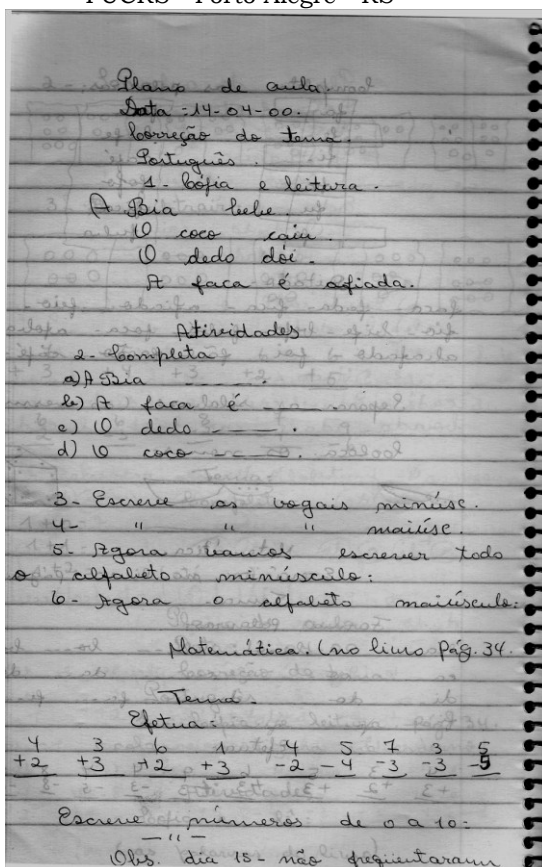 PUCRS – Porto Alegre – RS
Plano de aula.
Data - 14-04-00.
Correção do tema.
Português.
1 - Cópia e leitura.
A Bia bebe.
O coco caiu.
O dedo dói.
A faca é afiada.
Atividades
2 - Completa
a) A Bia ____.
b) A faca é ____.
c) O dedo ____.
d) O coco ____.
3 - Escreve as vogais minúsc.
4 - " " " maiúsc.
5 - Agora vamos escrever todo
o alfabeto minúsculo:
6 - Agora o alfabeto maiúsculo:
Matemática: (no livro pág. 34.
Tema.
Efetua:
4 3 6 1 4 5 7 3 5
+2 +3 +2 +3 -2 -4 -3 -3 -5
Escreve números de 0 a 10:
— " —
Obs. dia 15 - não frequentaram